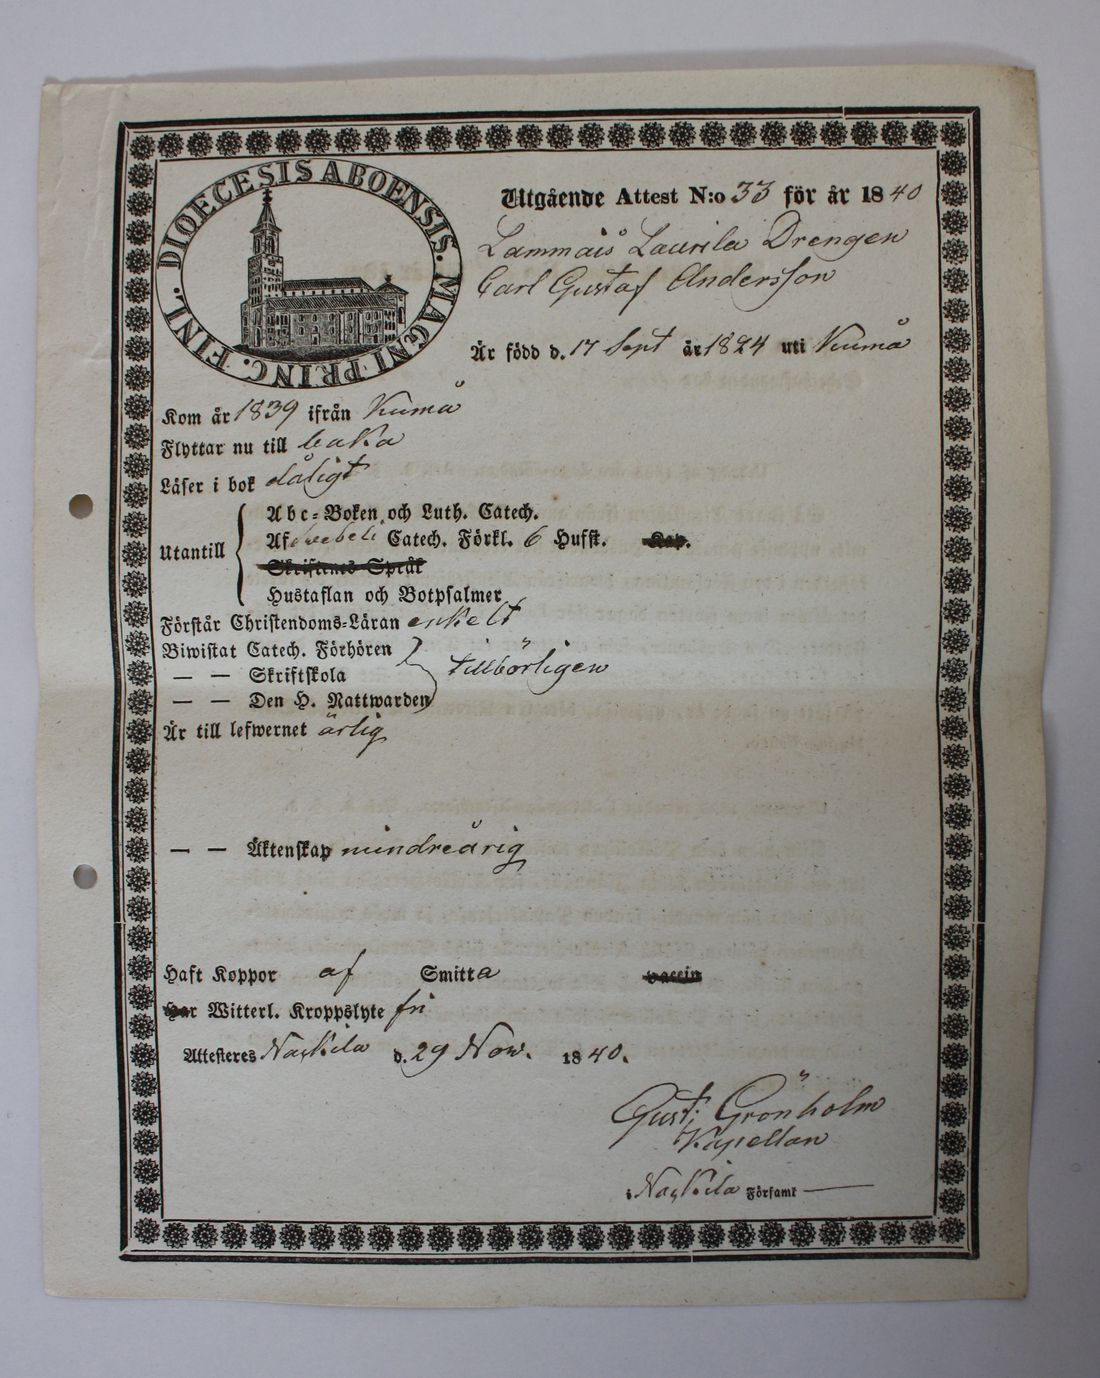 DIOECESIS ABOENSIS. MAGNI PRINC. FINL.
Utgående Attest N:o 33 för år 1840
Lammais Laurila Drengen
Carl Gustaf Andersson
Är född d. 17 Sept år 1824 uti Kumå
Kom år 1839 ifrån Kumå
Flyttar nu till baka
Läser i bok dåligt
Utantill
Abc-Boken och Luth. Catech.
Af Svebeli Catech. Förkl. 6 Hufst. Kap.
Skriftenes Språk
Hustaflan och Botpsalmer
Förstår Christendoms-Läran enkelt
Biwistat Catech. Förhören
— — Skriftskola tillbörligen
— — Den H. Nattwarden
Är till lefwernet ärlig
— — Äktenskap minderårig
Haft Koppor af Smitta vaccin
Har Witterl. Kroppslyte fri
Attesteres Nackila d. 29 Nov. 1840.
Gust: Grönholm
Kapellan
i Nackila Församl